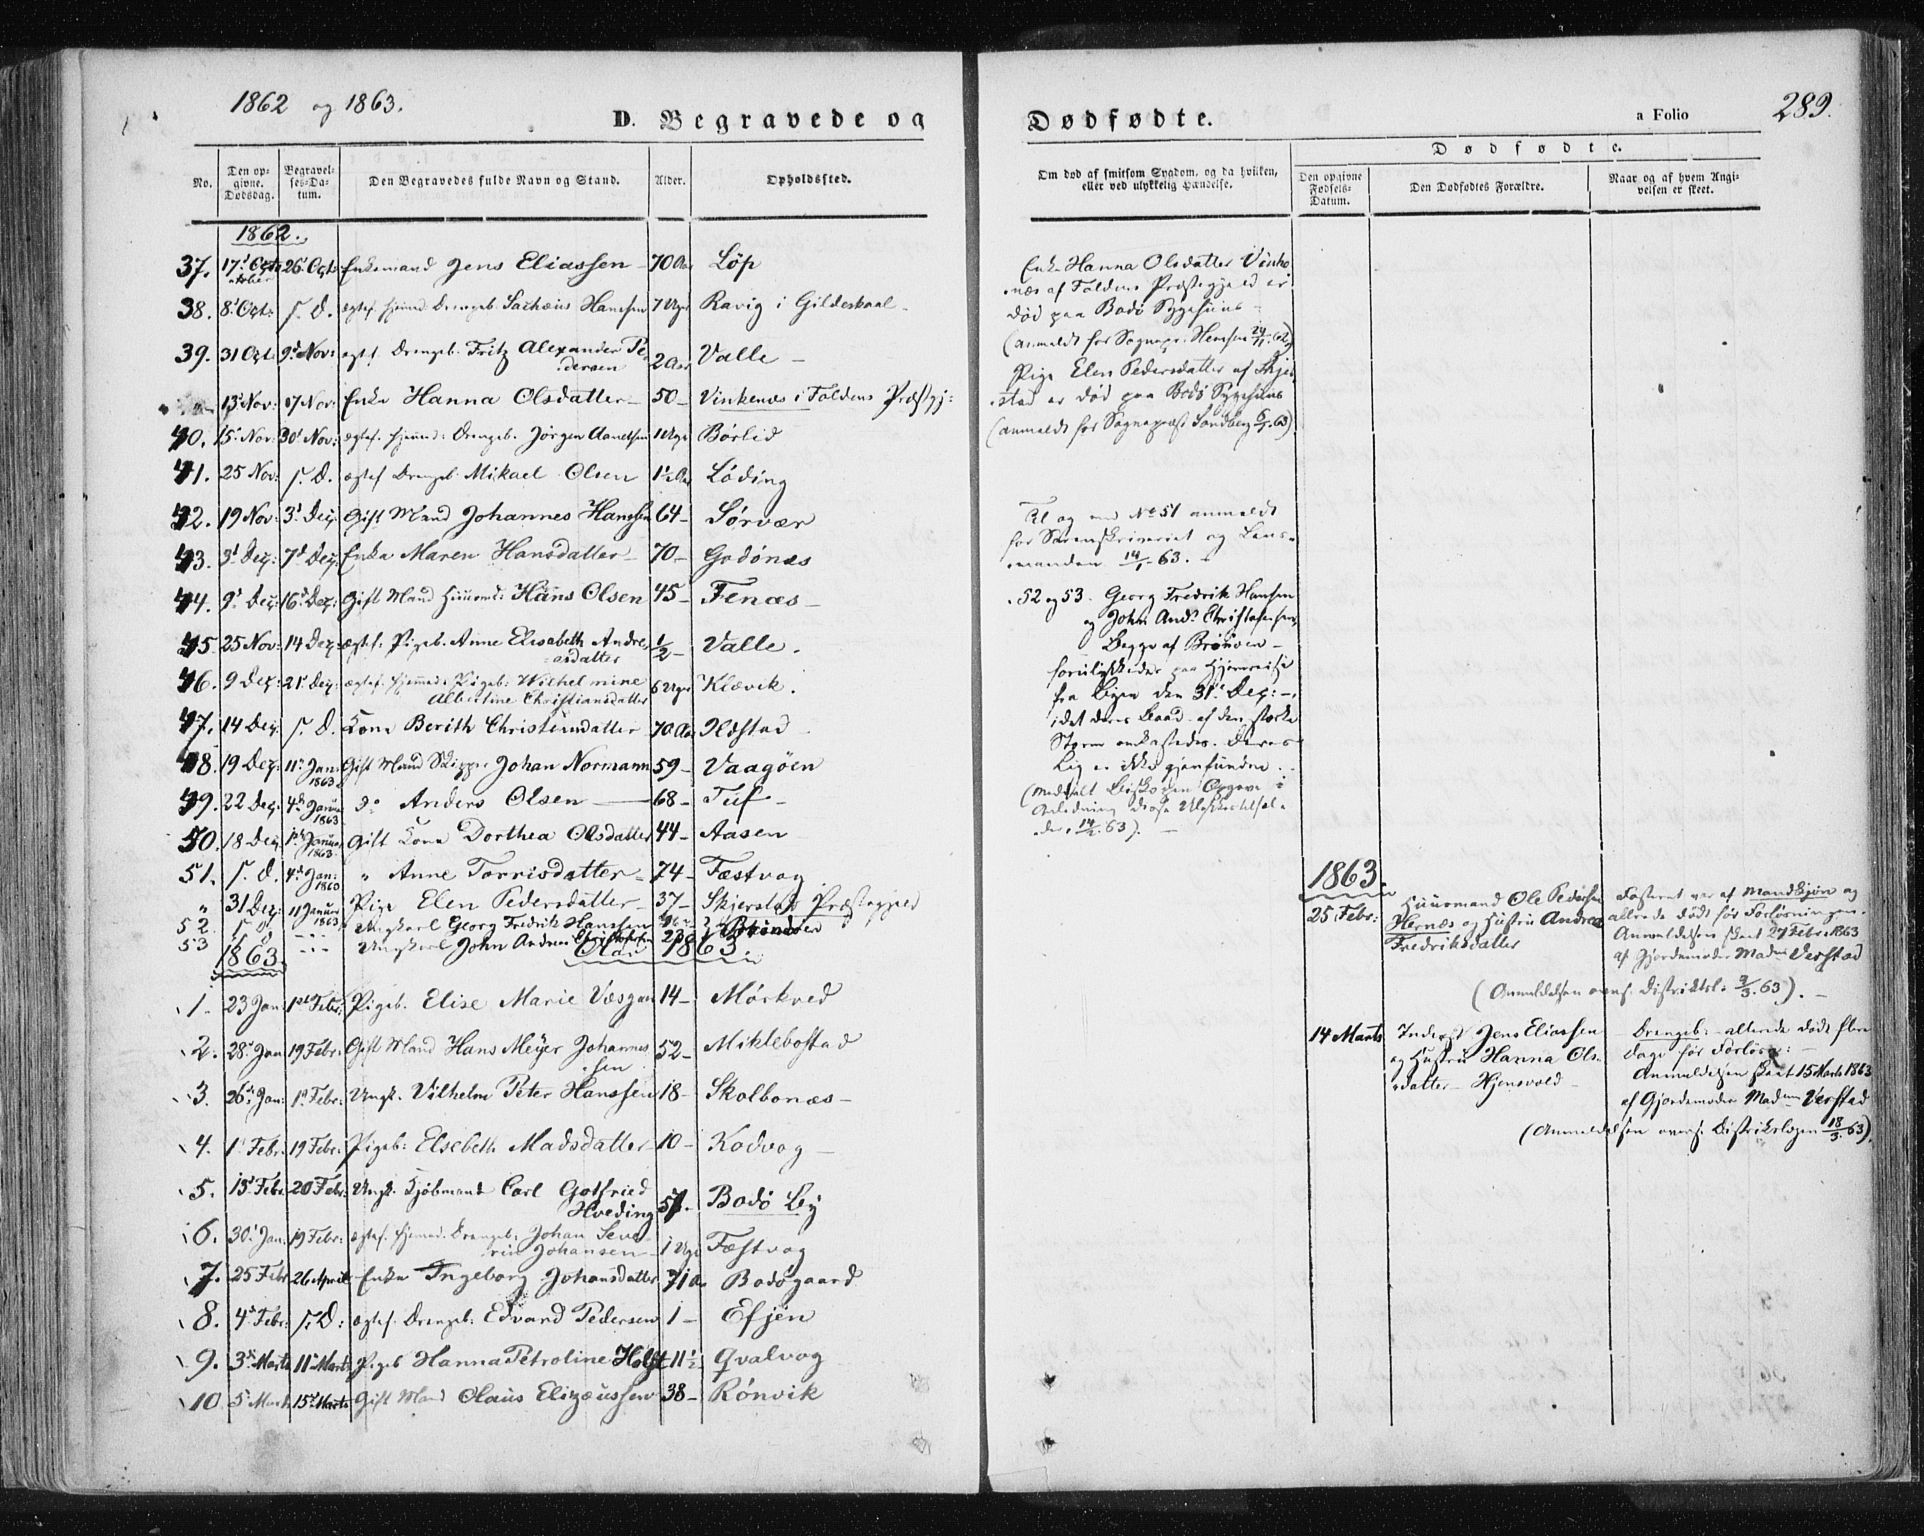 1862 og 1863.
D. Begravede og
No.
Den opgivne Dødsdag.
Begravelses-Datum.
Den Begravedes fulde Navn og Stand.
Alder.
Opholdssted.
1862.
37. 17' Oct. 26' Oct. Enkemand Jens Eliassen 70 Aar Løp
38. 8' Oct. s. D. ægtef. hjemmed. Drengeb. Sachæus Hansen 7 Uger Ravig i Gildeskaal
39. 31 Oct. 9d Nov: ægtef. Drengeb. Fritz Alexander Pedersen 2 Aar Valle
13' Nov: 17 Nov: Enke Hanna Olsdatter 50 Vinkenæs i Foldens Præstgj:
40. 15' Nov: 30' Nov: ægtef. hjemmd: Drengeb. Jørgen 1 Uge Børlid
41. 25 Nov: s. D. ægtef Drengeb. Mikael Olsen 1½ Aar Löding
42. 19 Nov: 3' Dec: Gift Mand Johannes Hanssen 64 Sörvær
43. 3' Dec: 7d Dec: Enke Maren Hansdatter 70 Godönæs
44. 9' Dec: 16' Dec: Gift Mand Huusmd: Hans Olsen 45 Fenæs
45. 25 Nov: 14 Dec: ægtef. Pigeb. Anne Elisabeth Andreasdatter ½ Valle.
46. 9 Dec: 21' Dec: ægtef. hjemmed: Pigeb: Wilhelmine Albertine Christiansdatter 6 Uger Klævik.
47. 14 Dec. s. D. Kone Berith Christensdatter 70 Aar Ilstad
48. 19 Dec. 11' Jan: 1863 Gift Mand Skipper Johan Normann 59 Vaagöen
49. 22 Dec. 4de Januar 1863 do Anders Olsen 68 Tuf
50. 18 Dec 1ste Januar 1863 Gift Kone Dorthea Olsdatter 44 Aasen
51. s. D. 4de Jan: 1863 " Anne Torrisdatter 74 Fæstvog
" 31 Dec: 11 Januar 1863 Pige Elen Pedersdatter 37 Skjerstad Præstegjeld
52 s. d. Ungkarl Georg Fredrik Hanssen Brönöen
53 s. d. Ungkarl John Andreas Christofersen
1863. Aar 1863.
1. 23 Jan 1ste Febr: Pigeb. Elise Marie 14 Mörkved
2. 28' Jan 19 Febr: Gift Mand Hans Meyer Johannessen 52 Miklebostad
3. 26' Jan: 1' Febr: Ungk. Vilhelm Peter Hanssen 18 Skolbonæs
4. 1' Febr: 19 Febr: Pigeb: Elsebeth Madsdatter 10 Kodvog
5. 15' Febr. 20 Febr: Ungk. Kjöbmand Carl Gotfried Hveding 57. Bodö By
6. 30' Jan: 19 Febr: ægtef. hjemmed: Drengeb: Johan Severin Johansen 1 Uge Fæstvog
7. 25 Febr 26 April Enke Ingeborg Johansdatter 71 a Bodögaard
8. 4' Febr: s. D: ægtef. Drengeb: Edvard Pedersen 1 Efjen
9. 3' Marts 11' Marts Pigeb Hanna Petroline Holst 11½ Qvalvog
10 5' Marts 15' Marts Gift Mand Olaus Elizæussen 38 Rönvik
Dødfødte.
a Folio 289.
Om død af smitsom Sygdom, og da hvilken, eller ved ulykkelig Hændelse.
Dødfødte.
Den opgivne Fødsels-Datum.
Den Dødfødtes Forældre.
Naar og af hvem Angivelsen er skeet.
Enke Hanna Olsdatter Vinkenæs
af Foldens Præstegjeld er
död paa Bodö Sygehuus
(anmeldt for Sognepr.
Pige Elen Pedersdatter af Skjerstad
er död paa Bodö Sygehuus
(anmeldt for Sognepræst Sandberg 6/1 63)
Til og med No 51 anmeldt
for Sorenskriveriet og Lensmanden
14/1 63.
52 og 53. Georg Fredrik Hansen
og John Andr. Christofersen,
Begge af Brönöen
forulykkedes paa Hjemreise
fra Byen den 31' Dec:
idet deres Baad af den stærke
Storm omkastedes. Deres
Lig er ikke gjenfundne.
(meddelt Biskopen Opgave i
Anledning disse Ulykkestilfælder
14/2 63).
1863.
25 Febr:
Huusmand Ole Pedersen
Hernæs og Hustru Andrea
Fredriksdatter
Fosteret var af Mandkjön og
allerede dödt för Forlösningen.
Anmeldelsen skeet 27 Febr: 1863
af Gjordemoder Madm Verstad
(Anmeldelsen overs. Distriktsl. 3/3 63).
14 Marts
Inderst Jens Eliassen
og Hustru Hanna Olsdatter
Hjensvold
Drengeb: allerede död flere
Dage för Forlösn:
Anmeldelsen skeet 15 Marts 1863
af Gjordemoder Madm Verstad
(Anmeldelsen overs. Distriktslægen 18/3 63).